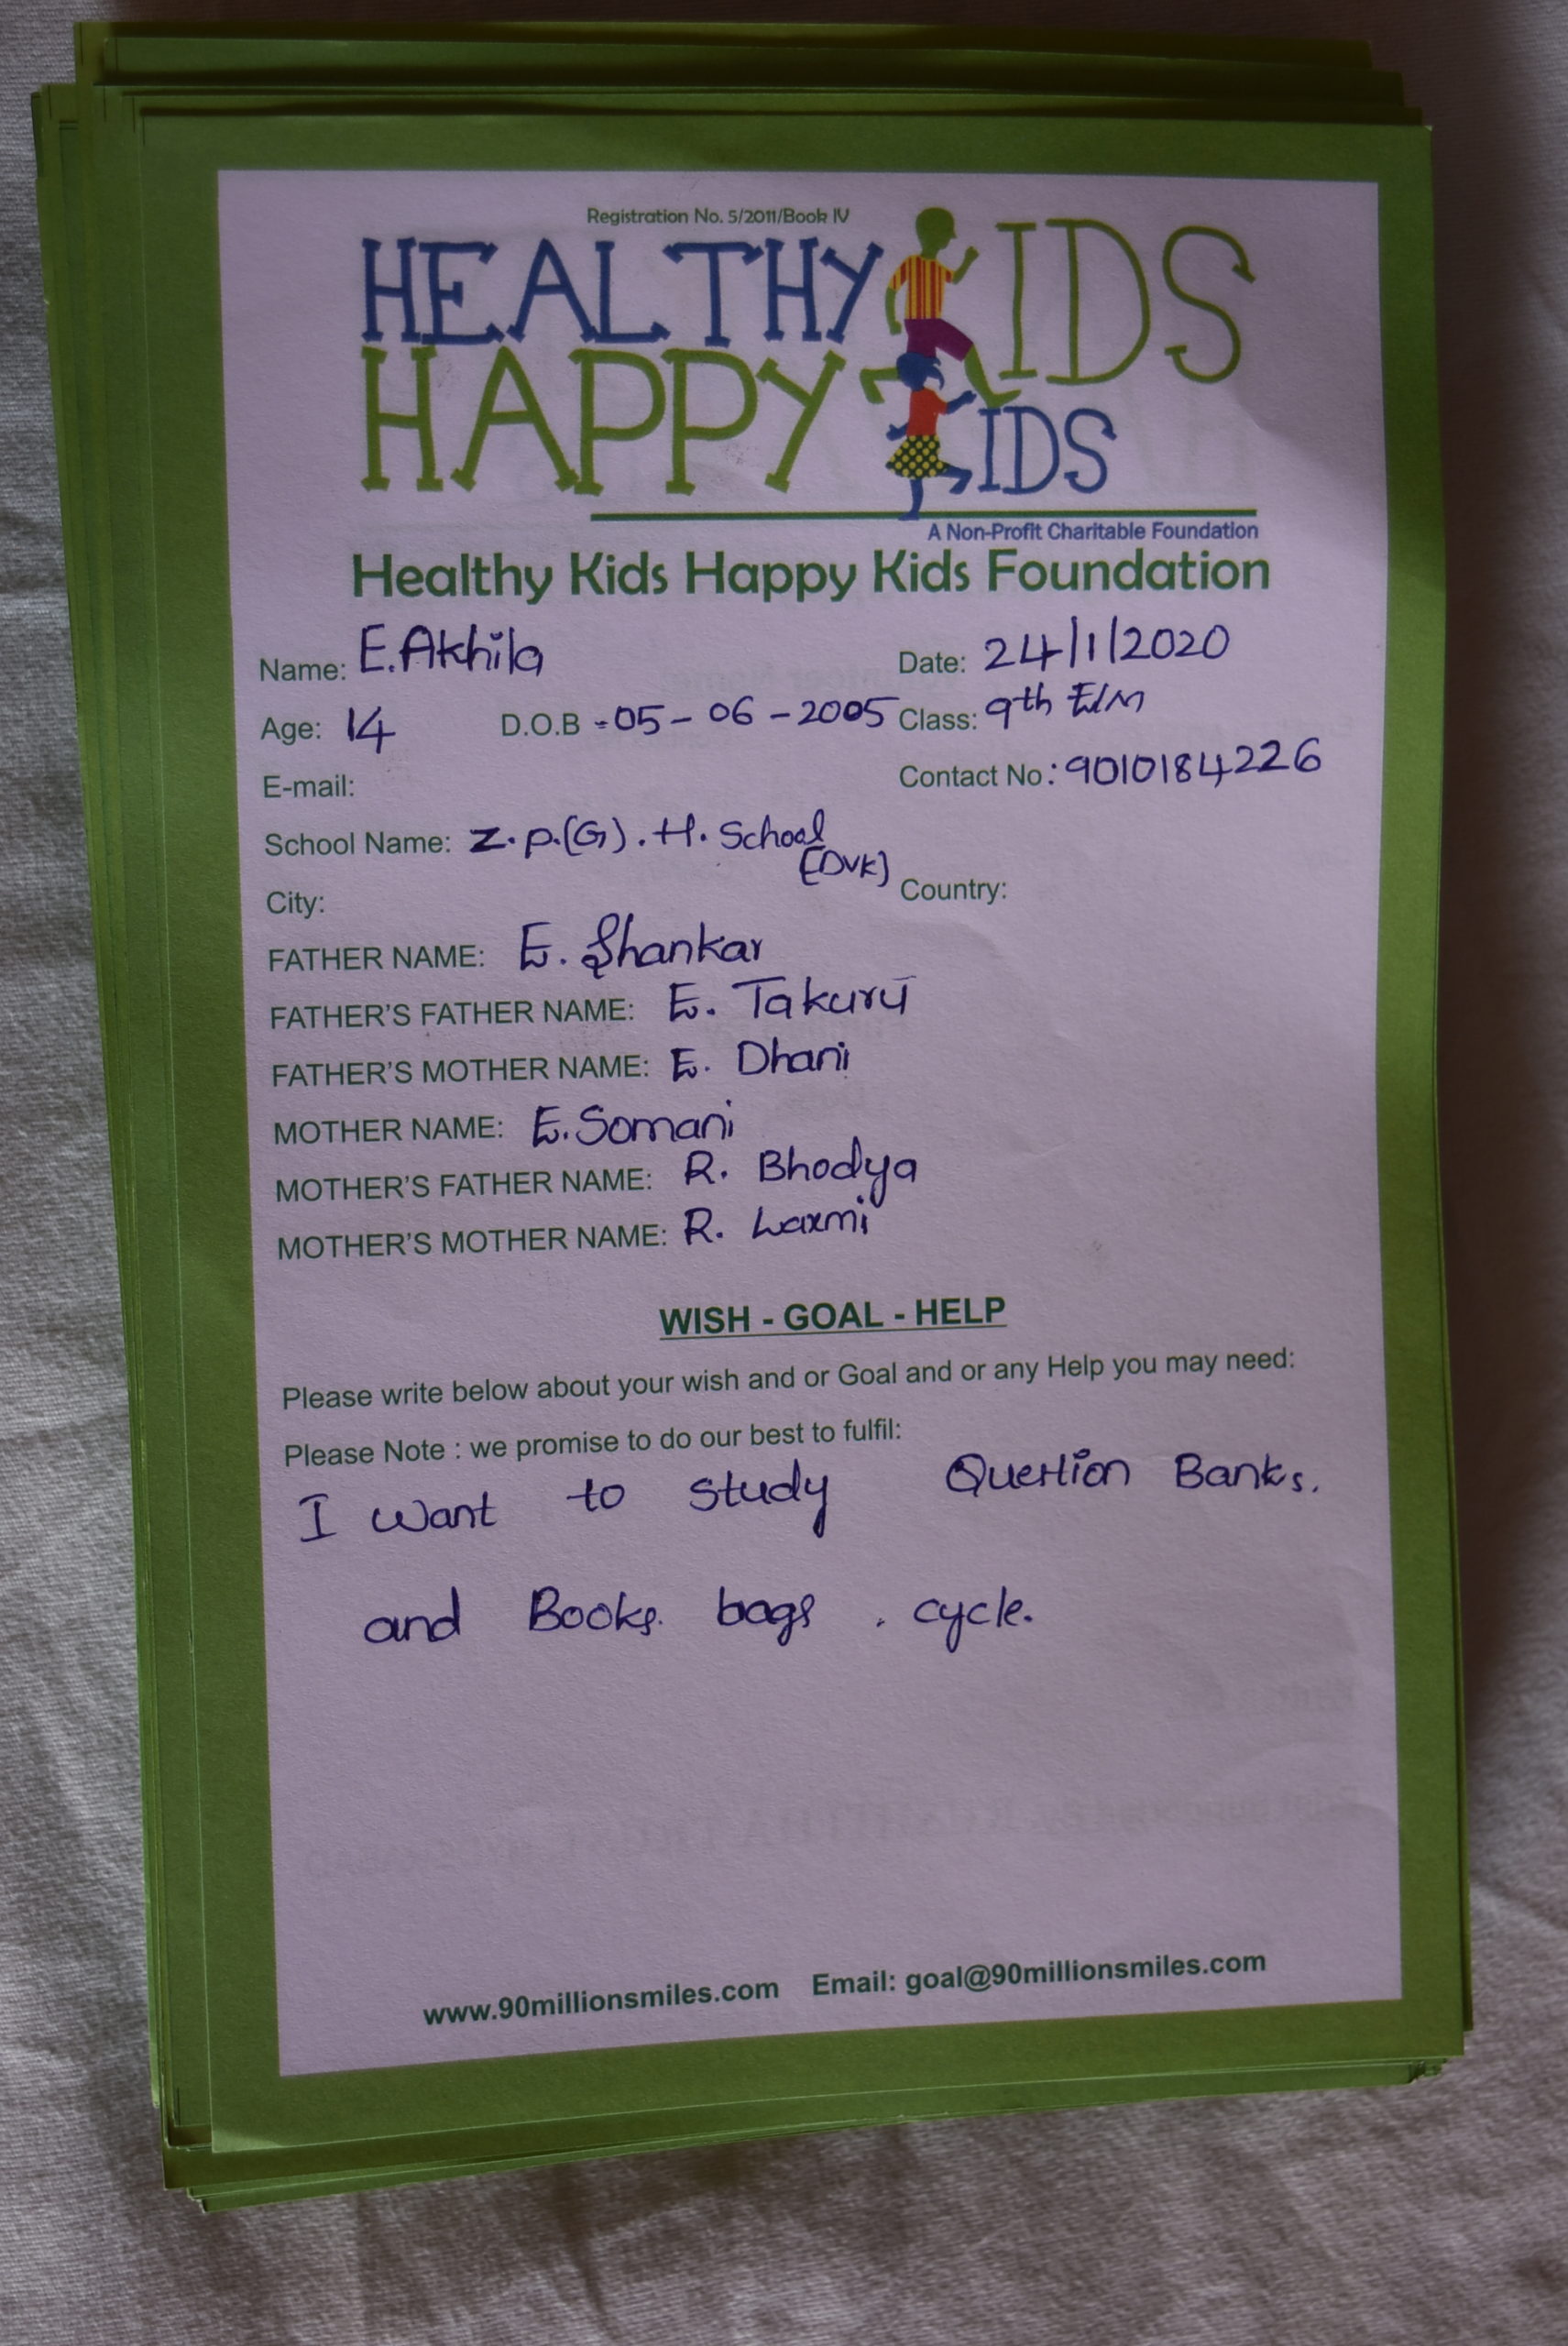 Registration No. 5/2011/Book IV
HEALTHY KIDS
HAPPY KIDS
A Non-Profit Charitable Foundation
Healthy Kids Happy Kids Foundation
Name: E.Akhila Date: 24/1/2020
Age: 14 D.O.B - 05 - 06 - 2005 Class: 9th E/M
E-mail: Contact No : 9010184226
School Name: Z.p.(G).H. School
(DVK)
City: Country:
FATHER NAME: E. Shankar
FATHER'S FATHER NAME: E. Takuru
FATHER'S MOTHER NAME: E. Dhani
MOTHER NAME: E.Somani
MOTHER'S FATHER NAME: R. Bhodya
MOTHER'S MOTHER NAME: R. Laxmi
WISH - GOAL - HELP
Please write below about your wish and or Goal and or any Help you may need:
Please Note : we promise to do our best to fulfil:
I want to study Question Banks.
and Books. bags . cycle.
www.90millionsmiles.com Email: goal@90millionsmiles.com